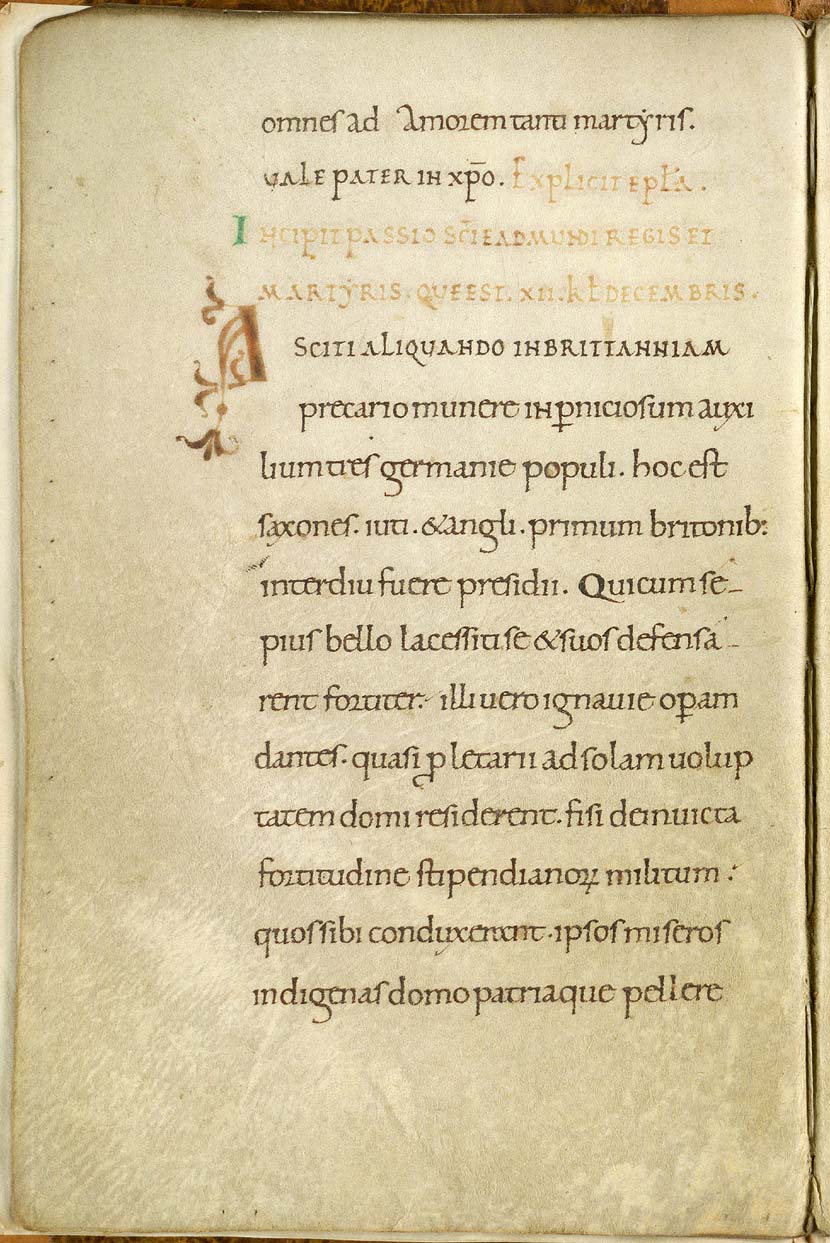 omnes ad Amorem tanti martẏris.
VALE PATER IN XP̅O. Explicit ep̅l̅a.
INCIPIT PASSIO SC̅I EADMUNDI REGIS ET
MARTẎRIS. QUE EST. XII. kł DECEMBRIS.
ASCITI ALIQUANDO IN BRITTANNIAM
precario munere in ꝑniciosum auxi
lium tres germanie populi. hoc est
saxones. iuti. & angli. primum britonib:
interdiu fuere presidii. Qui cum se-
pius bello lacessiti se & suos defensa-
rent fortiter. illi uero ignauie oꝑam
dantes. quasi ꝓletarii ad solam uolup
tatem domi residerent. fisi de inuicta
fortitudine stipendianoꝝ militum.
quos sibi conduxerant. ipsos miseros
indigenas domo patriaque pellere